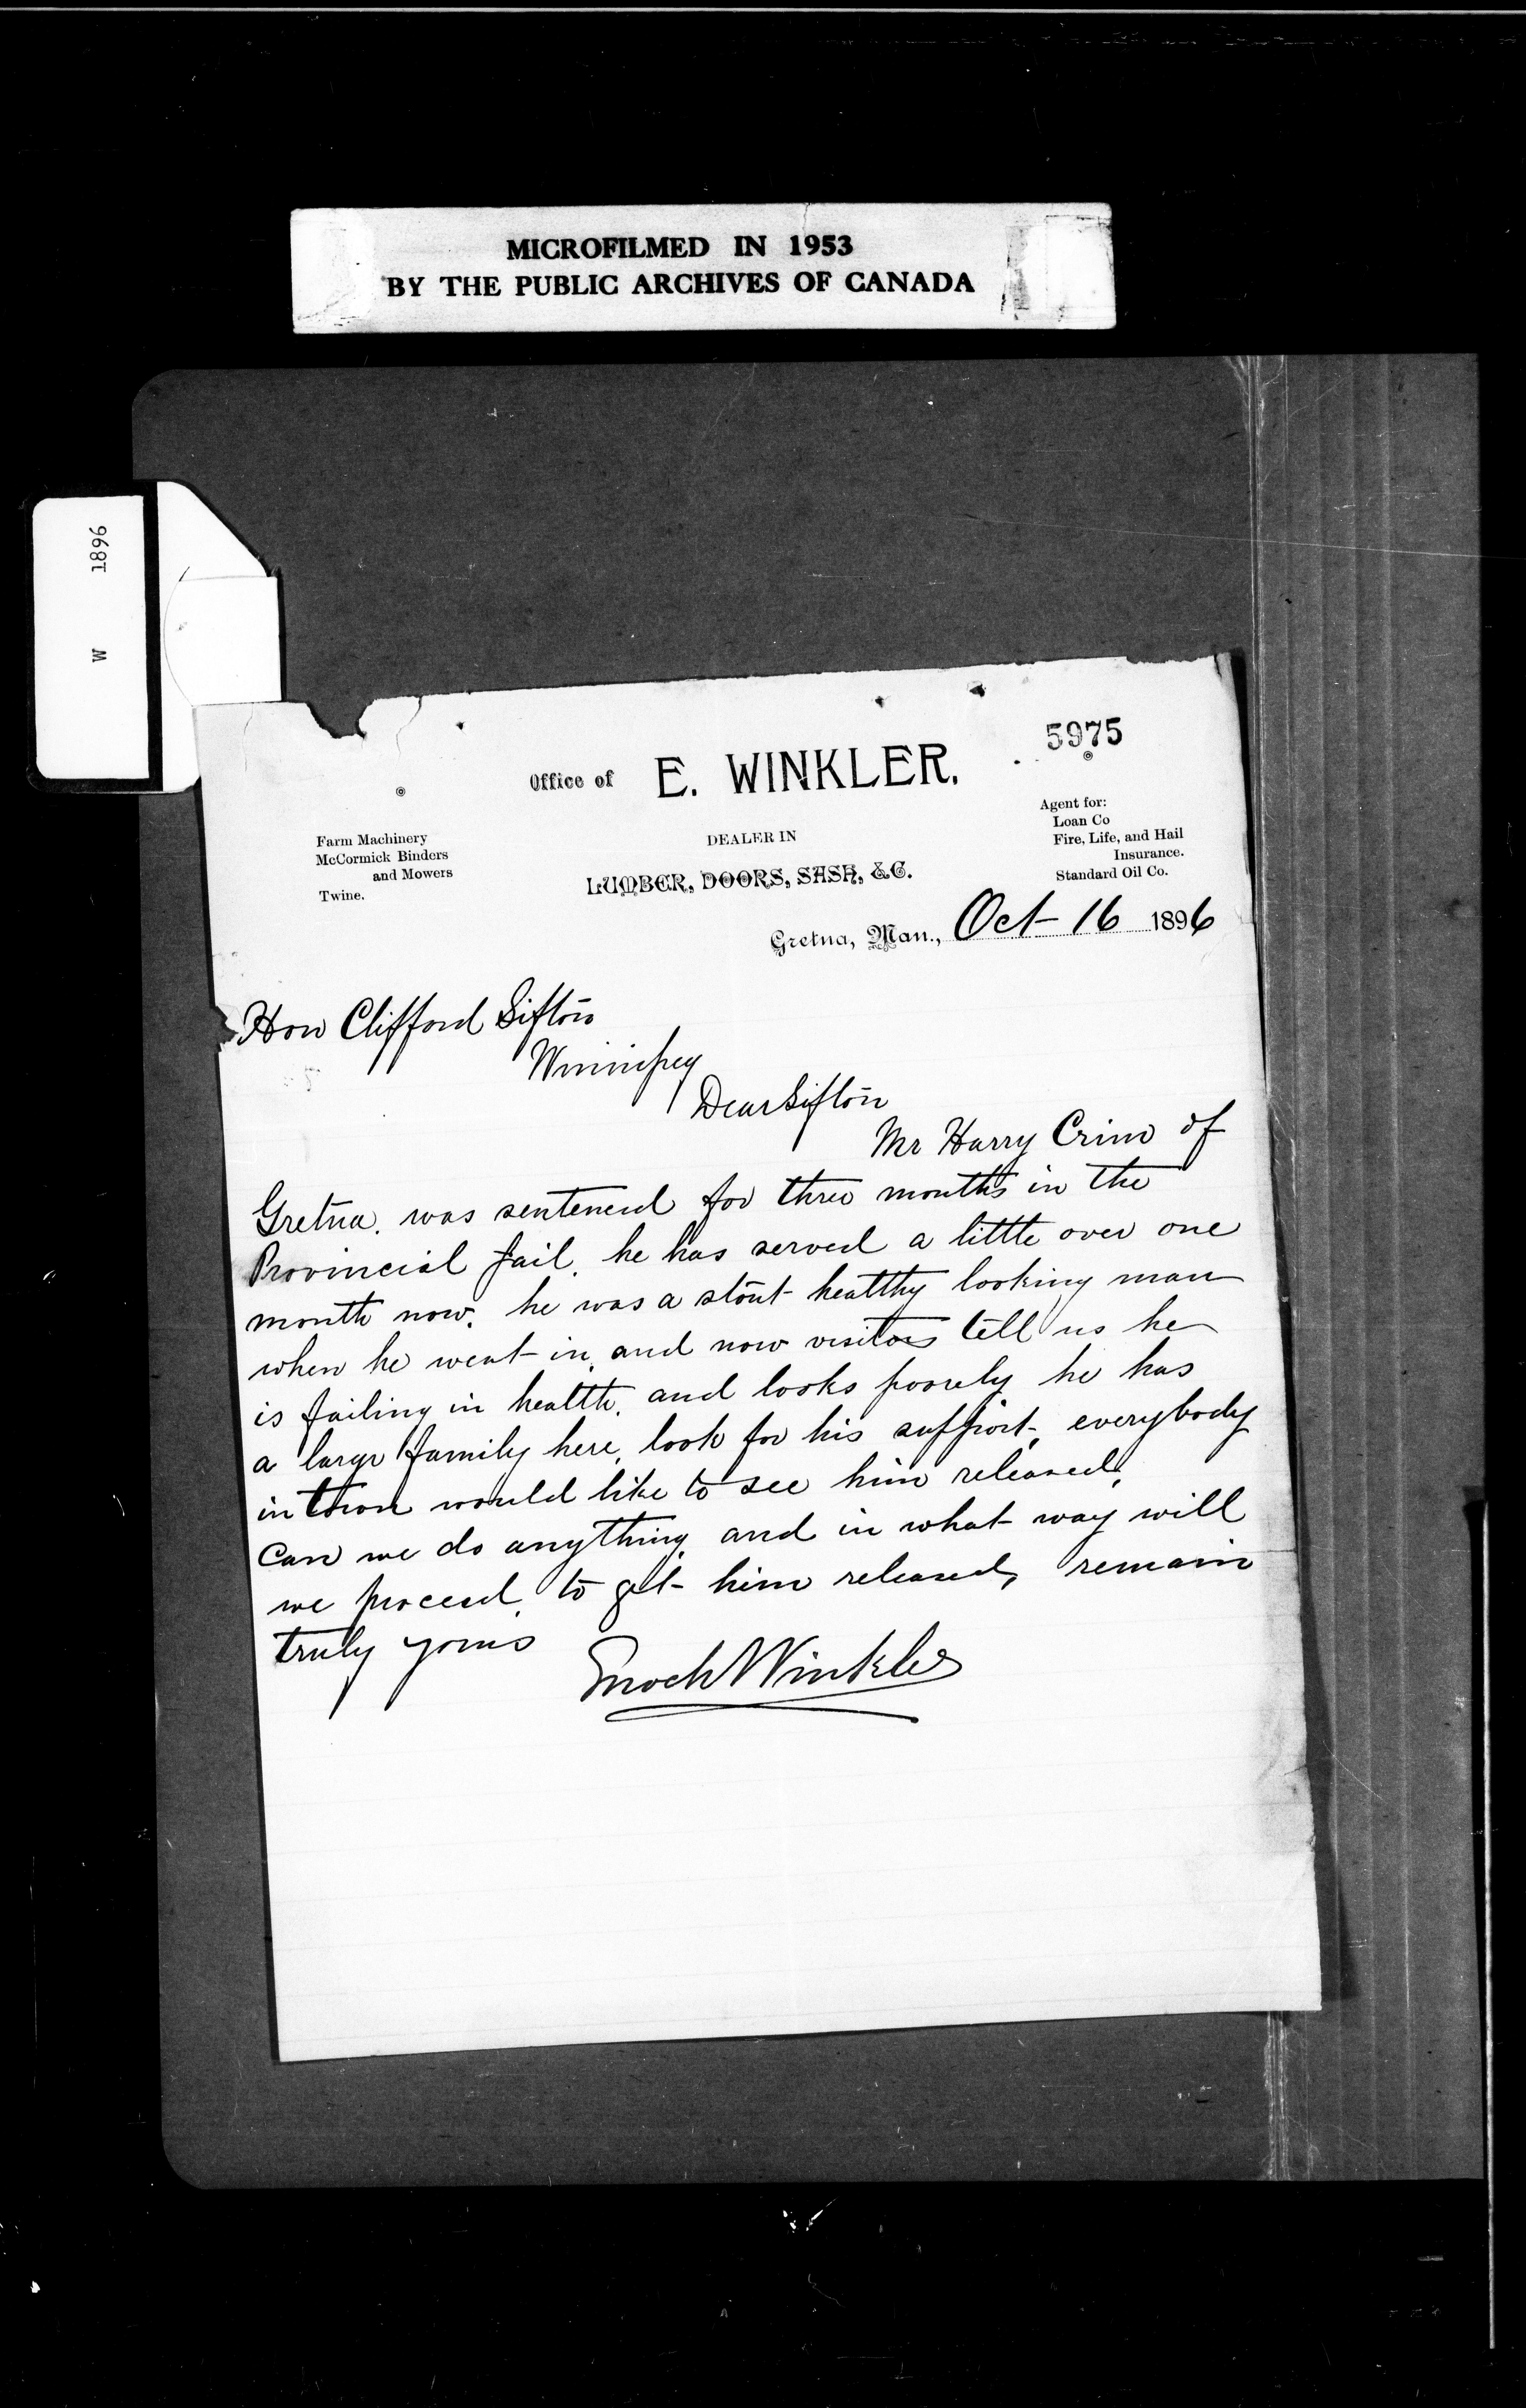 MICROFILMED IN 1953
BY THE PUBLIC ARCHIVES OF CANADA
W 1896
5975
Office of E. WINKLER.
Farm Machinery
McCormick Binders
and Mowers
Twine.
DEALER IN
LUMBER, DOORS, SASH, &C.
Agent for:
Loan Co
Fire, Life, and Hail
Insurance.
Standard Oil Co.
Gretna, Man., Oct 16 1896
Hon Clifford Sifton
Winnipeg
Dear Sifton
Mr Harry Crim of
Gretna. was sentenced for three months in the
Provincial Jail. he has served a little over one
month now. he was a stout healthy looking man
when he went in, and now visitors tell us he
is failing in health. and looks poorely he has
a large family here, look for his support, everybody
in town would like to see him released.
Can we do anything, and in what way will
we proceed, to get him released, remain
truly yours
Enoch Winkler